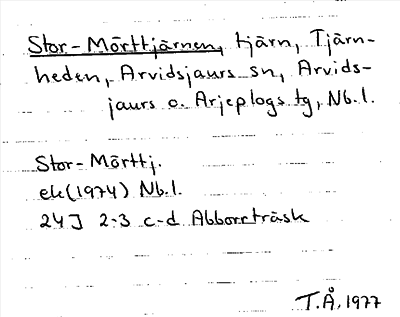 Stor-Mörttjärnen, tjärn, Tjärn-
heden, Arvidsjaurs sn, Arvids-
jaurs o. Arjeplogs tg, Nb.l.
Stor-Mörttj.
ek(1974) Nb.l.
24J 2-3 c-d Abborrträsk
T.Å, 1977